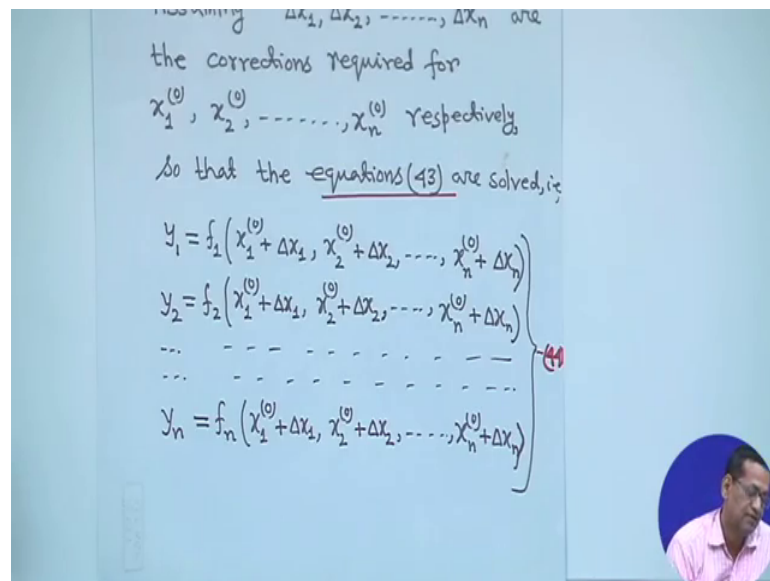 Assuming Δx₁, Δx₂, -------, Δxₙ are
the corrections required for
x₁⁽⁰⁾, x₂⁽⁰⁾, --------, xₙ⁽⁰⁾ respectively,
so that the equations (43) are solved, i.e,
y₁ = f₁(x₁⁽⁰⁾ + Δx₁, x₂⁽⁰⁾ + Δx₂, ----, xₙ⁽⁰⁾ + Δxₙ)
y₂ = f₂(x₁⁽⁰⁾ + Δx₁, x₂⁽⁰⁾ + Δx₂, ----, xₙ⁽⁰⁾ + Δxₙ)
... - - - - - - - - - -
-(44
... - - - - - - - - - -
yₙ = fₙ(x₁⁽⁰⁾ + Δx₁, x₂⁽⁰⁾ + Δx₂, ----, xₙ⁽⁰⁾ + Δxₙ)